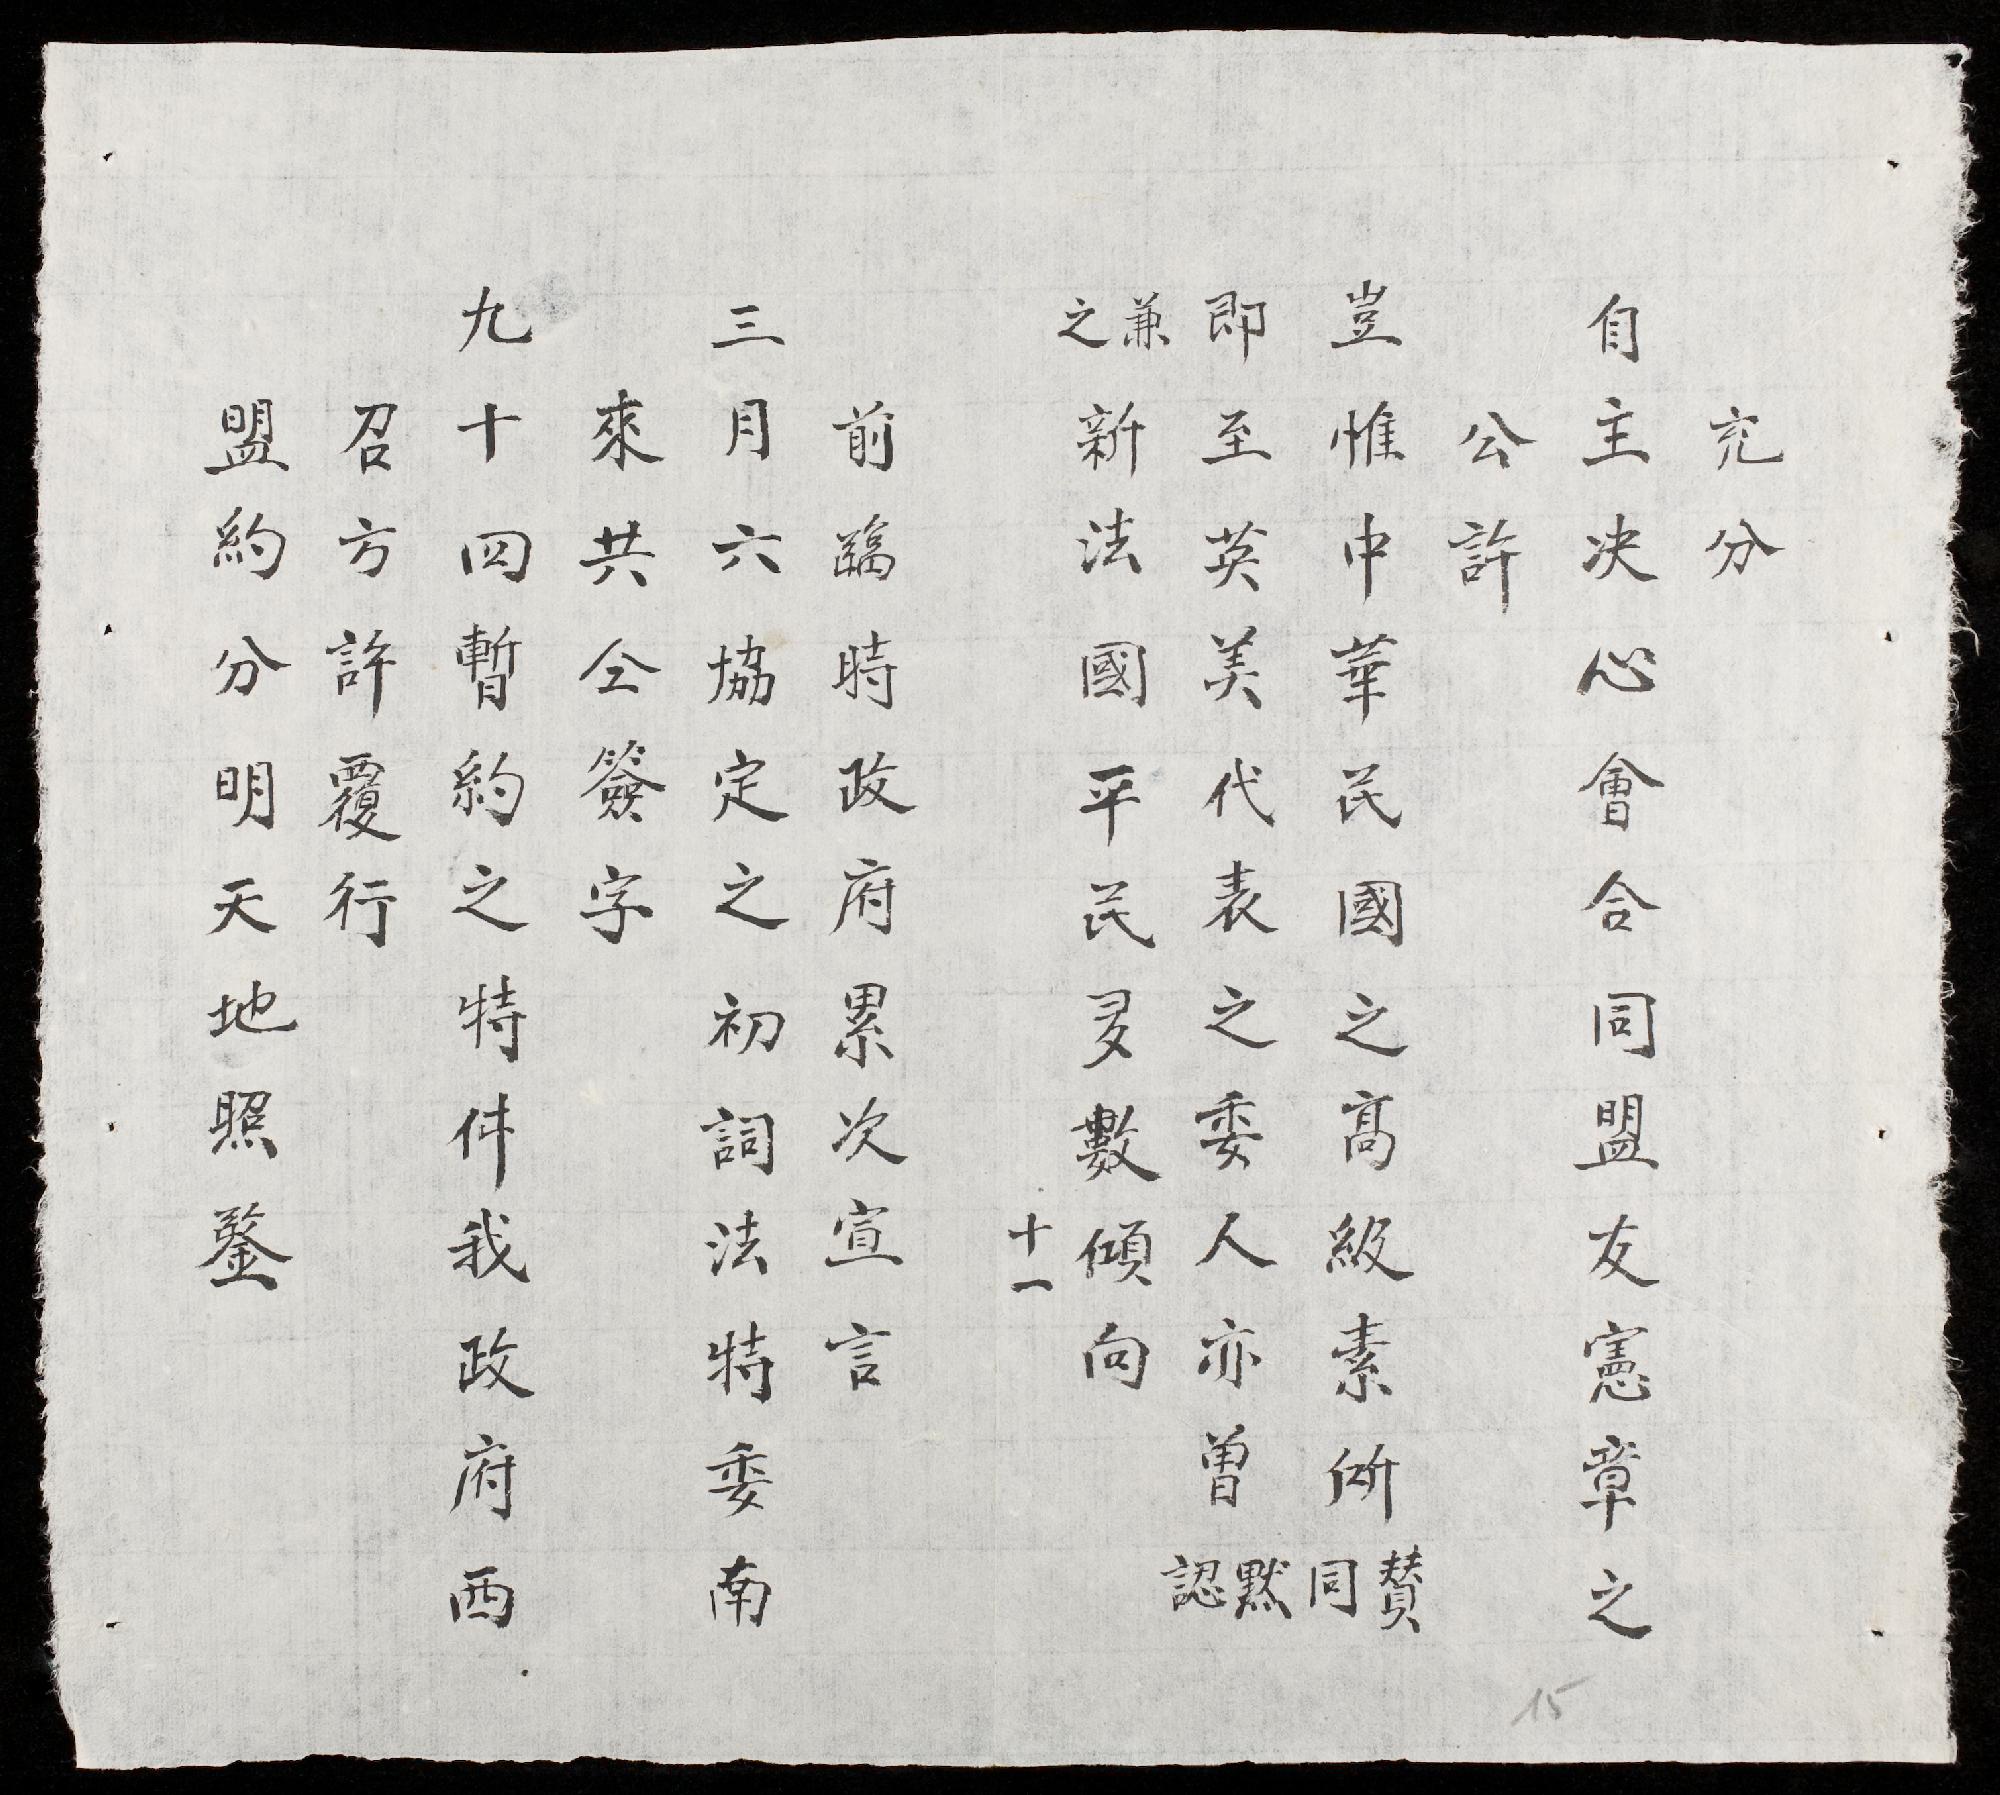 充分
自主决心會合同盟友憲章之
公許
豈惟中華民國之高級素所贊同
即至英美代表之委人亦曾默認
兼之新法國平民多數傾向
十一
前臨時政府累次宣言
三月六協定之初詞法特委南
來共仝簽字
九十四暫約之特件我政府西
召方許覆行
盟約分明天地照鍳
15